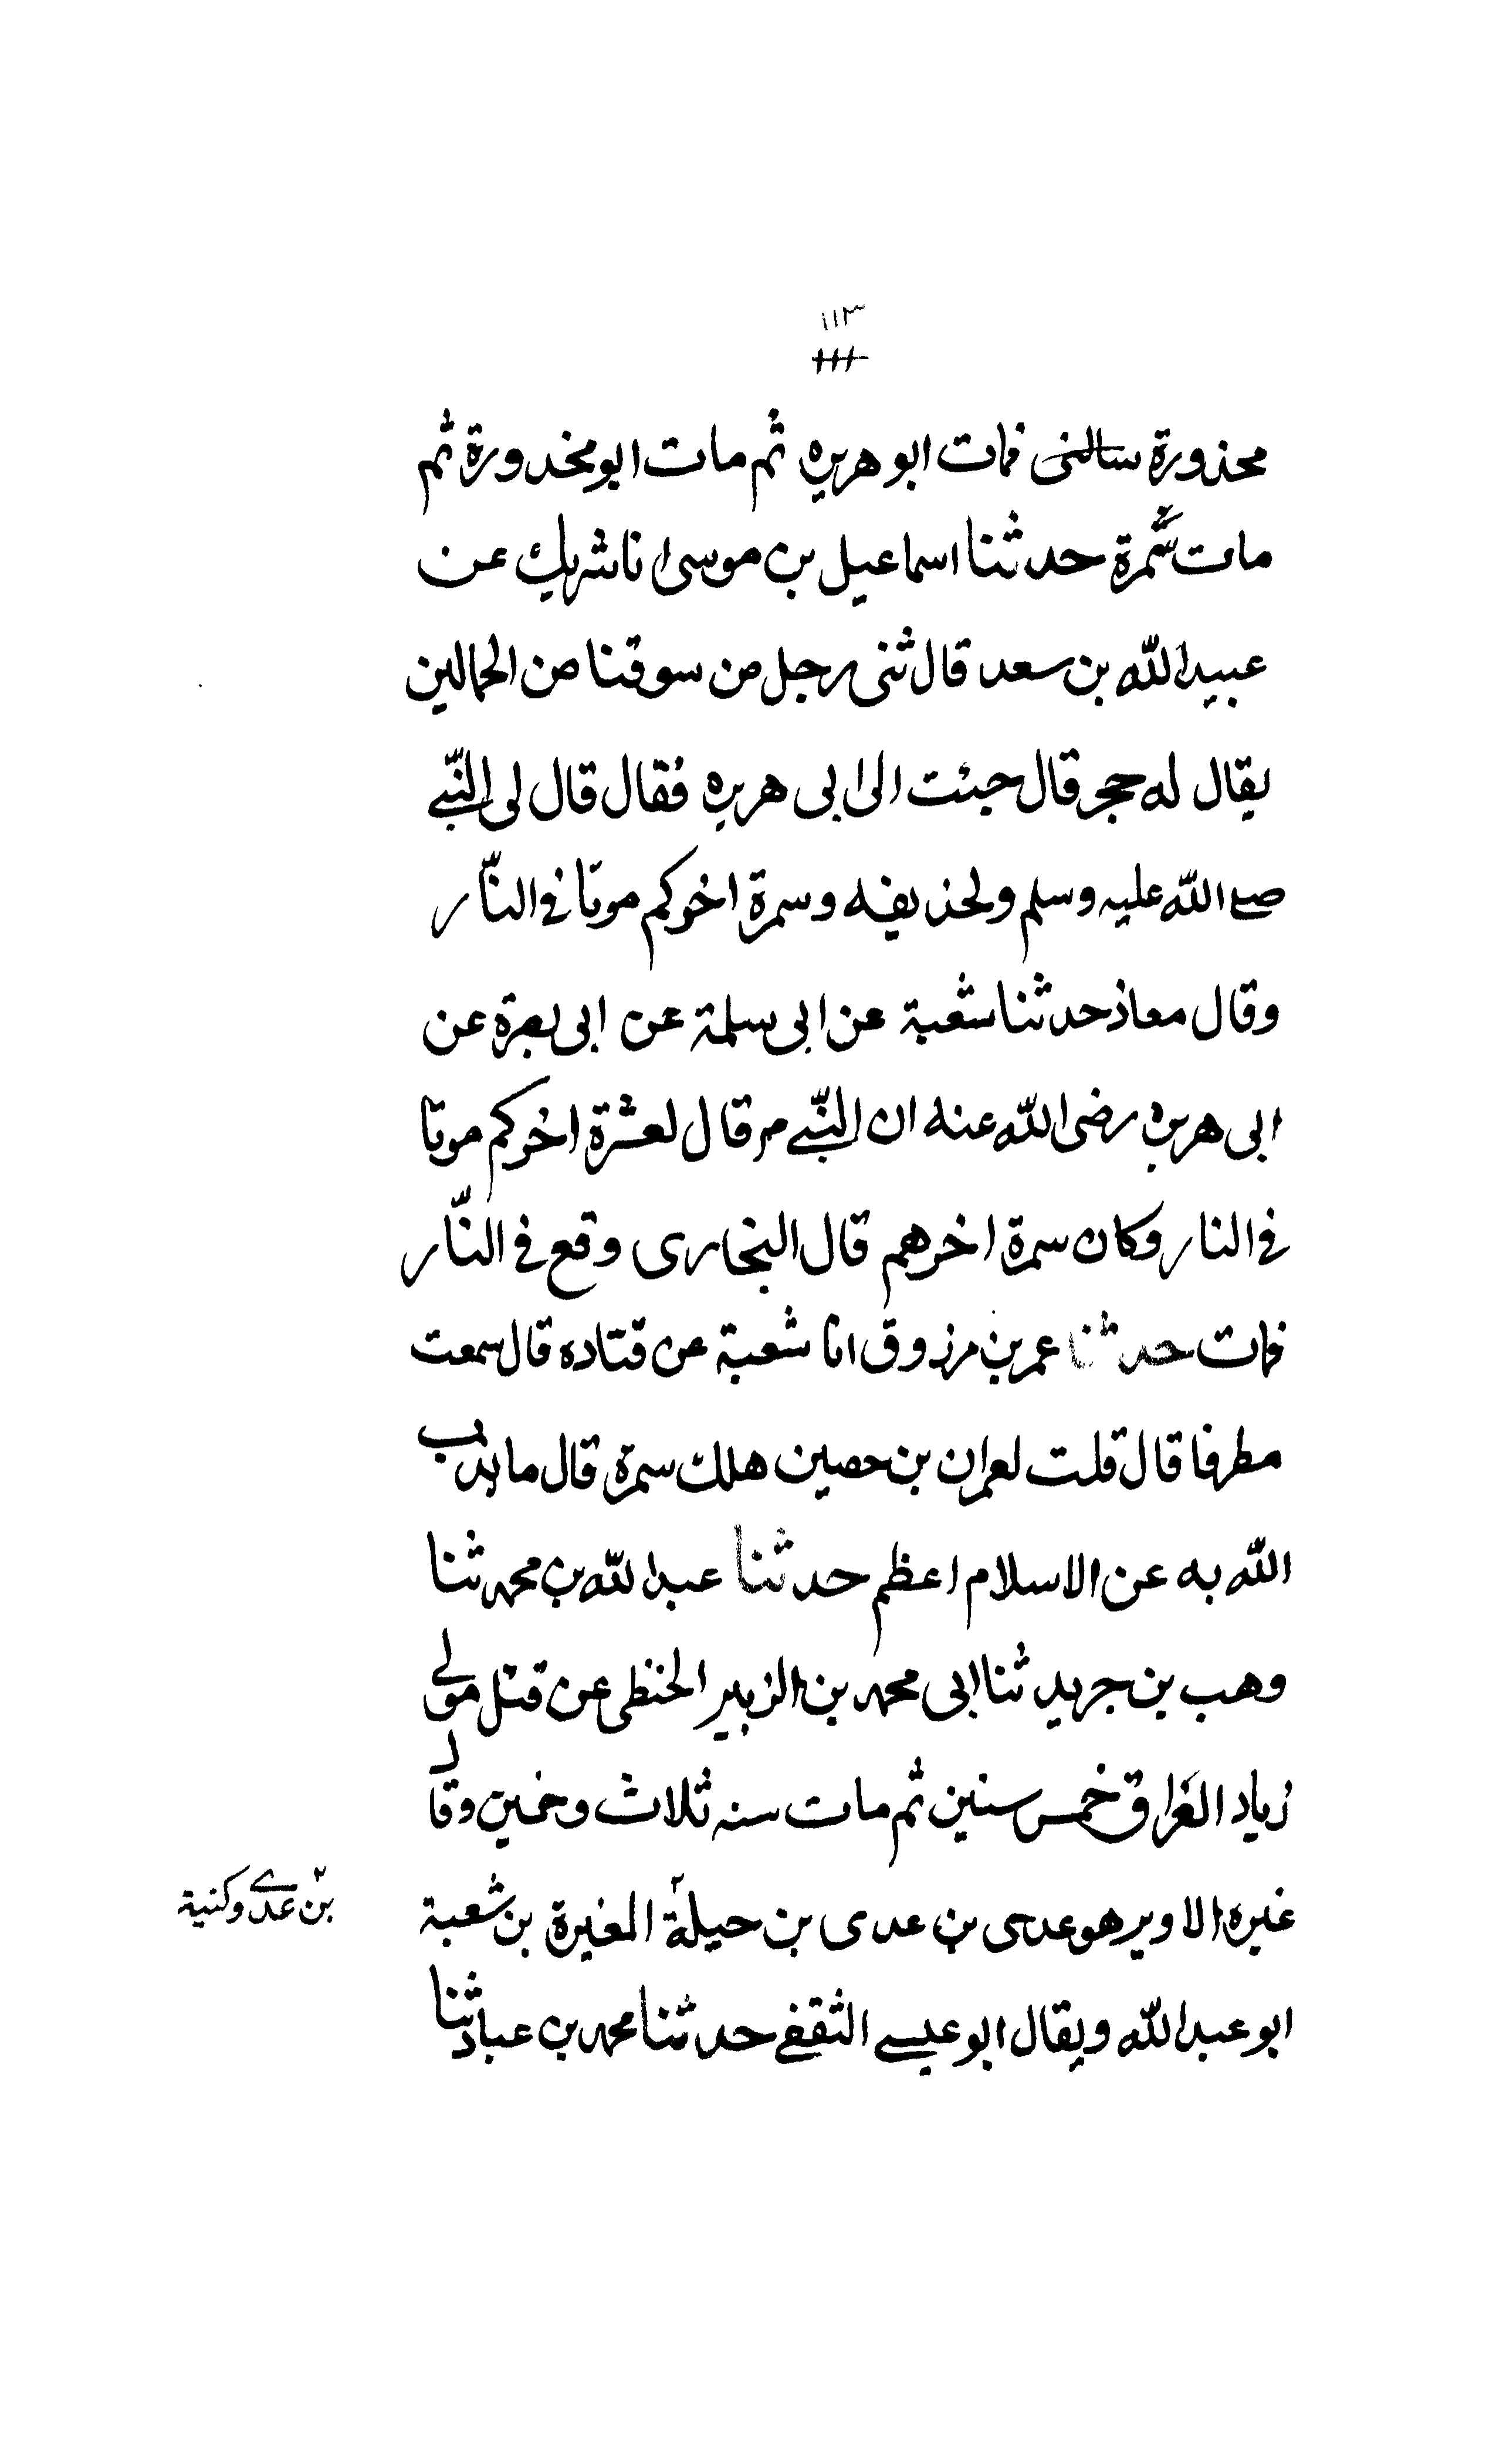 ١١٣
محذورة سالنى فمات ابو هريره ثم مات ابو مخدورة ثم
مات سمرة حدثنا اسماعيل بن موسى انا شريك عن
عبيد الله بن سعد قال ثنى رجل من سوقنا من الحمالين
يقال له حجر قال جئت الى ابى هريره فقال قال لى النبى
صلى الله عليه وسلم ولحذيفه وسمرة اخركم موتا فى النار
وقال معاذ حدثنا شعبة عن ابى سلمة عن ابى بصرة عن
ابى هريره رضى الله عنه ان النبى م قال لعشرة اخركم موتا
فى النار وكان سمرة اخرهم قال البخارى وقع فى النار
فمات حدثنا عمر بن مرزوق انا شعبة عن قتاده قال سمعت
مطرفا قال قلت لعمران بن حصين هلك سمرة قال ما يذب
الله به عن الاسلام اعظم حدثنا عبد الله بن محمد ثنا
وهب بن جريد ثنا ابى محمد بن الزبير الحنظى عن قتل مولى
زياد العراق خمس سنين ثم مات سنه ثلاث وخمسين وقال
غيره الاوير هو عدى بن عدى بن حيلة المغيرة بن شعبة
بن عدى وكنية
ابو عبد الله ويقال ابو عيسى الثقفى حدثنا محمد بن عباد ثنا